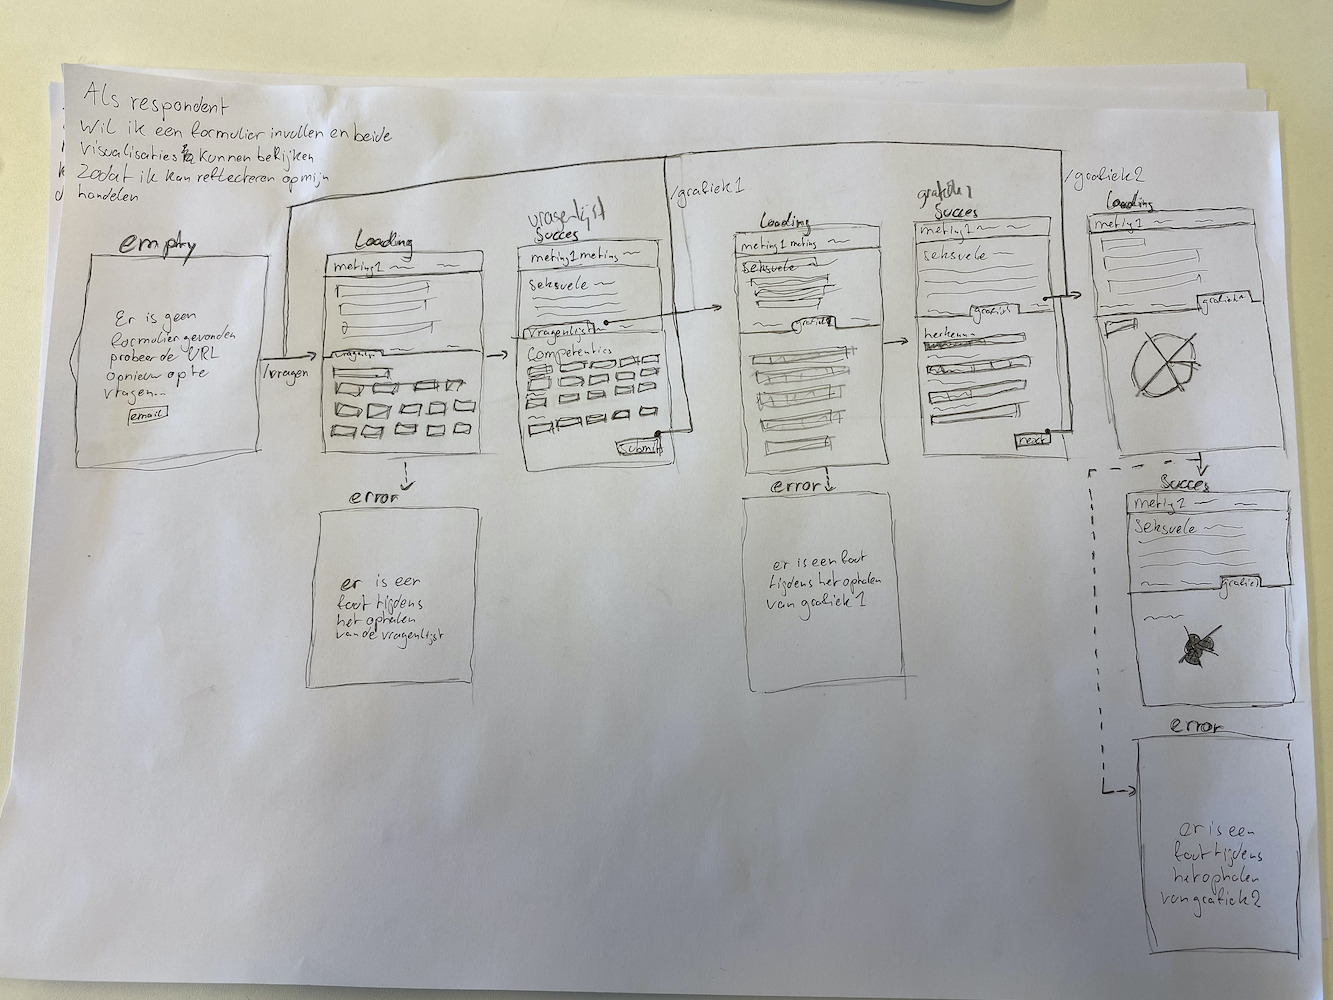 Als respondent
Wil ik een formulier invullen en beide
visualisaties kunnen bekijken
Zodat ik kan reflecteren op mijn
handelen
empty
Er is geen
formulier gevonden
probeer de URL
opnieuw op te
vragen...
email
/vragen
Loading
meting 1
vragen
error
er is een
fout tijdens
het ophalen
van de vragenlijst
vragenlijst
Succes
meting 1 meting
Seksuele
vragenlijst
Competenties
Submit
/grafiek 1
Loading
meting 1 meting
Seksuele
grafiek
error
er is een fout
tijdens het ophalen
van grafiek 1
grafiek 1
Succes
meting 1
Seksuele
grafiek
herkenn
next
/grafiek 2
Loading
meting 1
grafiek
Succes
meting 1
Seksuele
grafiek
error
er is een
fout tijdens
het ophalen
van grafiek 2